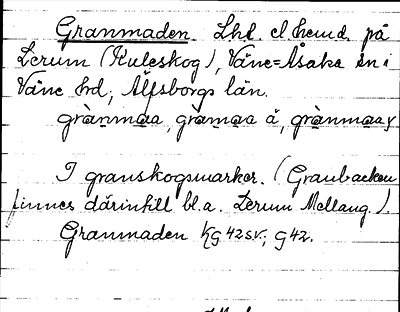 Granmaden. Lht. el hemd. på
Lerum (Kuleskog), Väne-Åsaka sn i
Väne hd, Älfsborgs län.
grànmaa, gràmaa å, grànmaa
I granskogsmarker. (Granbacken
finnes därintill bl.a. Lerum Mellang.).
Granmaden KG42sv; G42.